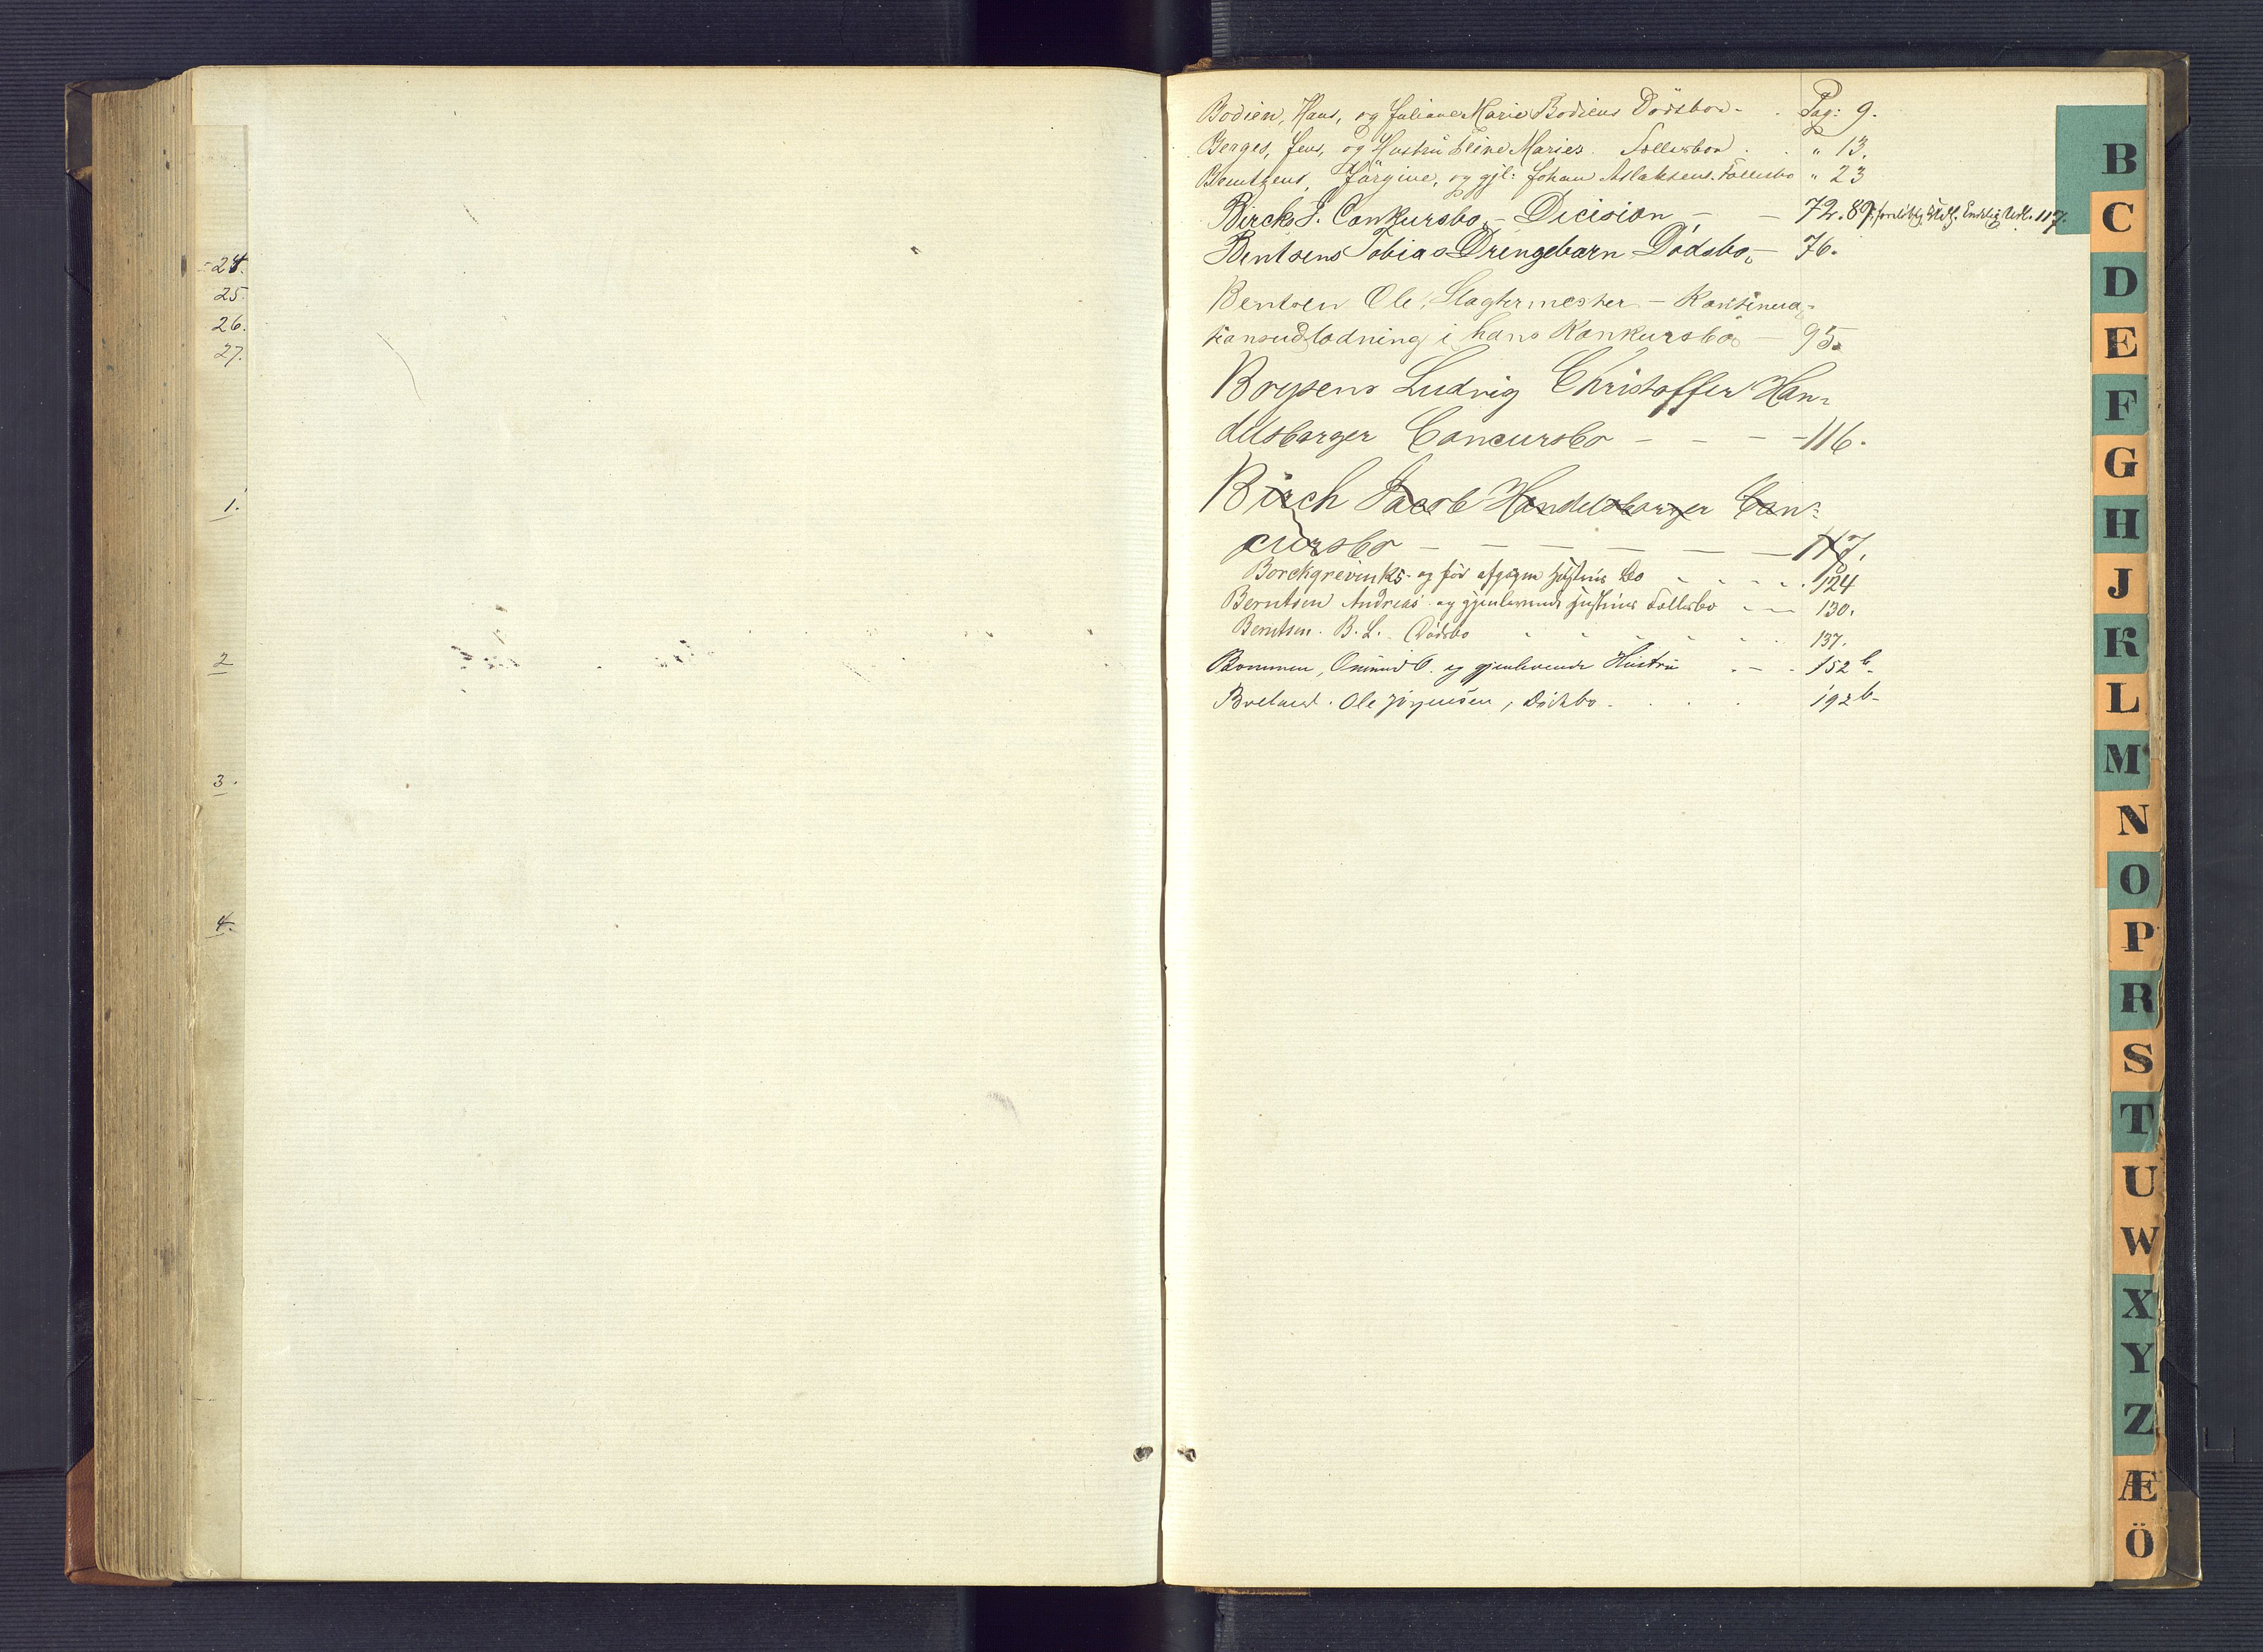 24.
25.
26.
27.
1.
2
3.
4.
Bodien, Hans, og Juliane Marie Bodiens Dödsbo - . Pag: 9.
Berges, Jens, og Hustru Eline Maries Fællesbo . . " 13.
Berntzens, Jörgine, og gjl: Johan Aslaksens Fællesbo " 23
Birch J. Conkursbo, - Dicision - - 72. 89, foreløbig Udl. Endelig Udl. 117.
Bentsens Tobias Drengebarn Dödsbo, - 76.
Bentsen Ole, Slagtermester - Kontinua-
tionsudlodning i hans Konkursbo - 95.
Boysens Ludvig Christoffer Han-
delsborger Concursbo - - - - 116.
Birch Jacob Handelsborger Con-
cursbo - - - - - - 117.
Borckgrevinks og før afgagne Hustrus Bo - - - . 124
Berntsen Andreas og gjenlevende Hustrus Fællesbo - - 130.
Berntsen. B. L. Dødsbo - - - - - 137.
Bommen, Omund O. og gjenlevende Hustru . - - 152 b.
Breland. Ole Jörgensen, Dödsbo . . . . 192 b.
B
C
D
E
F
G
H
J
K
L
M
N
O
P
R
S
T
U
W
X
Y
Z
Æ
Ö